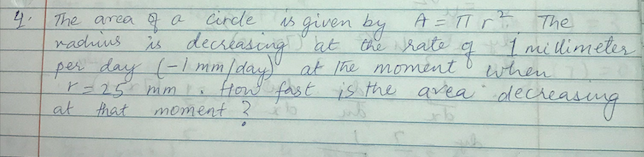 4. The area of a circle is given by A = π r². The
radius is decreasing at the rate of 1 millimeter
per day (-1 mm/day) at the moment when
r = 25 mm. How fast is the area decreasing
at that moment?